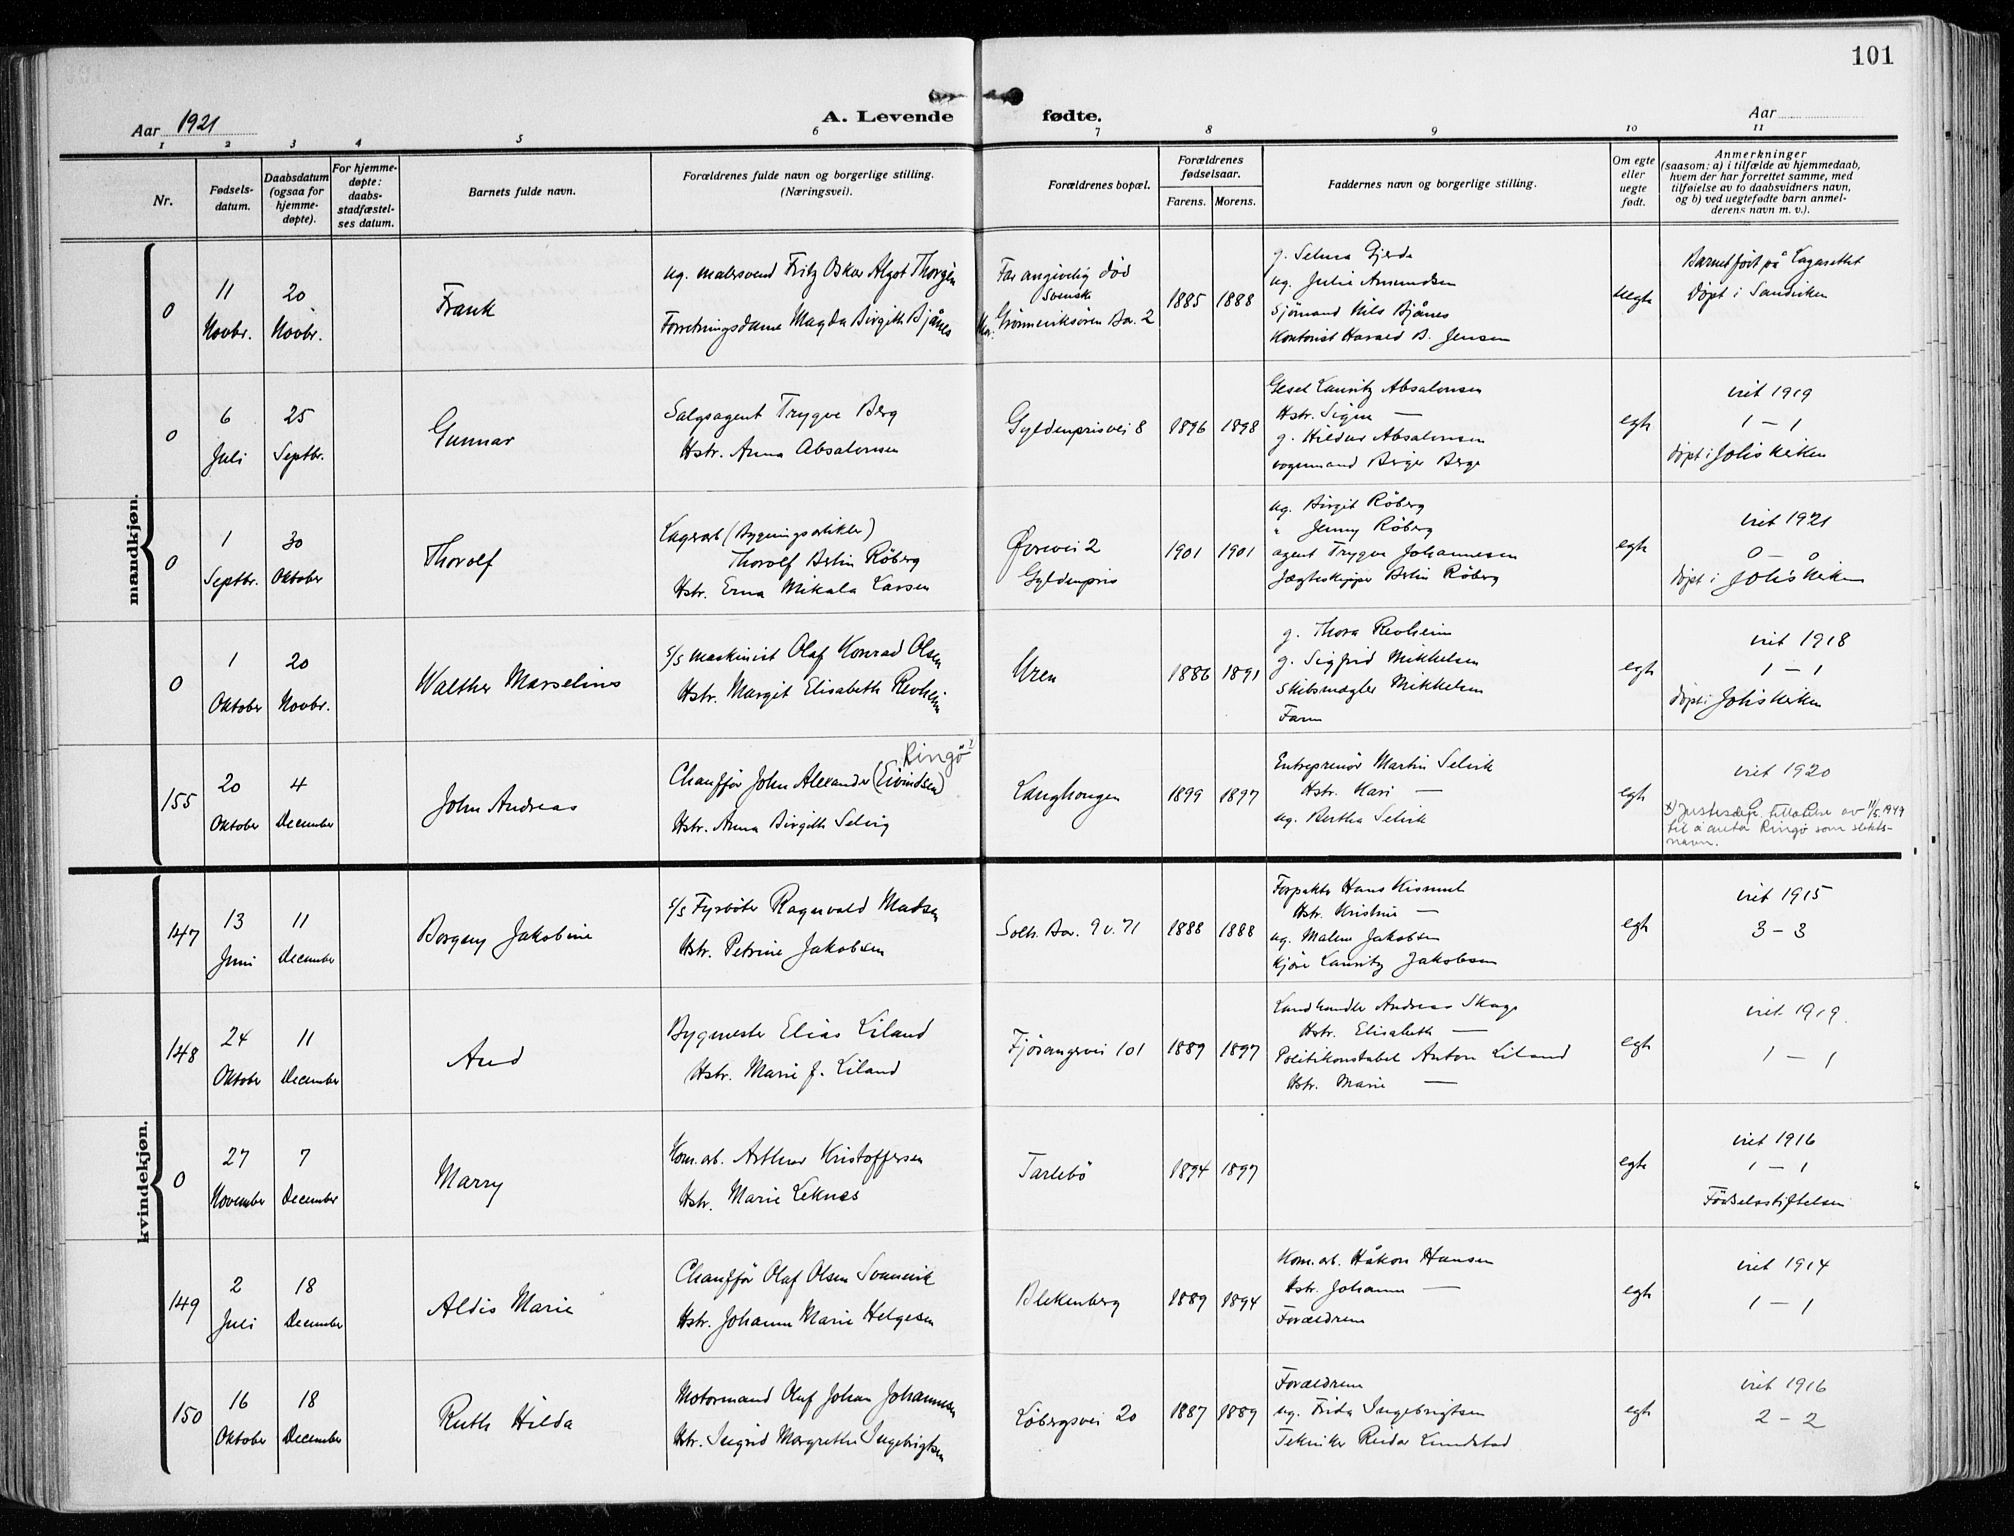 101
Aar 1921
A. Levende fødte.
Aar
1 2 3 4 5 6 7 8 9 10 11
Nr.
Fødsels-
datum.
Daabsdatum
(ogsaa for
hjemme-
døpte).
For hjemme-
døpte:
daabs-
stadfæstel-
ses datum.
Barnets fulde navn.
Forældrenes fulde navn og borgerlige stilling.
(Næringsvei).
Forældrenes bopæl.
Forældrenes
fødselsaar.
Farens. Morens.
Faddernes navn og borgerlige stilling.
Om egte
eller
uegte
født.
Anmerkninger
(saasom: a) i tilfælde av hjemmedaab,
hvem der har forrettet samme, med
tilføielse av to daabsvidners navn,
og b) ved uegtefødte barn anmel-
derens navn m. v.).
mandkjøn.
0
11
Novbr.
20
Novbr.
Frank
ug. malersvend Fritz Oskar Algot Thorgén
Forretningsdame Magda Birgith Bjånes
Far angivelig død
svensk
Mor: Grønneviksören Bar. 2
1885 1888
g. Selma Gjerde
ug. Julie Amundsen
Sjømand Nils Bjånes
Kontorist Harald B. Jensen
uegte
Barnet født på Lazarettet
Døpt i Sandviken
0
6
Juli
25
Septbr.
Gunnar
Salgsagent Trygve Berg
Hstr. Anna Absalonsen
Gyldenprisvei 8
1896 1898
Lauritz Absalonsen
Hstr. Signe —
g. Hildur Absalonsen
vognmand Birger Berge
egte
viet 1919
1 – 1
døpt i Johskirken
0
1
Septbr.
30
Oktober
Thorolf
Lagerarb (Bygningsartikler)
Thorolf Berlin Röberg
Hstr. Erna Mikala Larsen
Øvrevei 2
Gyldenpris
1901 1901
ug. Birgit Röberg
" Jenny Röberg
agent Trygve Johannesen
Jægteskipper Berlin Röberg
egte
viet 1921
0 – 0
døpt i Johskirken
0
1
Oktober
20
Novbr.
Walther Marselius
s/s maskinist Olaf Konrad Olsen
Hstr. Margit Elisabeth Revheim
Uren
1886 1891
g. Thora Revheim
g. Sigfrid Mikkelsen
Skibsmægler Mikkelsen
Faren
egte
viet 1918
1 – 1
døpt i Johskirken
155
20
Oktober
4
December
John Andreas
Ringö
Chauffør John Alexander (Eivindsen)
Hstr. Anna Birgith Selvig
Langhaugen
1899 1897
Entreprenör Martin Selvik
Hstr. Kari —
ug. Bertha Selvik
egte
viet 1920
x) Justisdep. tillatelse av 11/5.1949
til å anta Ringö som slekts-
navn.
kvindekjøn.
147
13
Juni
11
December
Borgny Jakobine
s/s Fyrbøter Ragnvald Madsen
Hstr. Petrine Jakobsen
Solh. Bar. 9 v. 71
1888 1888
Forpakter Hans Kismul
Hstr. Kristine —
ug. Malene Jakobsen
Lauritz Jakobsen
egte
viet 1915
3 – 3
148
24
Oktober
11
December
Aud
Bygmester Elias Liland
Hstr. Marie J. Liland
Fjösangervei 101
1889 1897
Landhandler Andreas Skage
Hstr. Elisabeth —
Politikonstabel Anton Liland
Hstr. Marie —
egte
viet 1919.
1 – 1
0
27
November
7
December
Marry
Kom. arb. Arthur Kristoffersen
Hstr. Marie Leknes
Tarlebö
1894 1897
egte
viet 1916
1 – 1
Fødselsstiftelsen
149
2
Juli
18
December
Aldis Marie
Chauffør Olaf Olsen Svanevik
Hstr. Johanne Marie Helgesen
Blekenberg
1889 1894
Kom. arb. Håkon Hansen
Hstr. Johanne —
Forældrene
egte
viet 1914
1 – 1
150
16
Oktober
18
December
Ruth Hilda
Motormand Oluf Johan Johannesen
Hstr. Ingrid Margrethe Ingebrigtsen
Löbergsvei 20
1887 1889
Forældrene
ug. Frida Ingebrigtsen
Tekniker Reidar Lundstad
egte
viet 1916
2 – 2